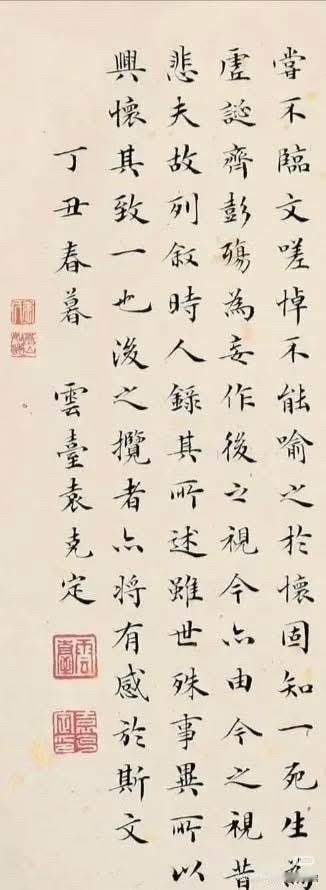 嘗不臨文嗟悼不能喻之於懷固知一死生為
虛誕齊彭殤為妄作後之視今亦由今之視昔
悲夫故列叙時人錄其所述雖世殊事異所以
興懷其致一也後之攬者亦將有感於斯文
丁丑春暮 雲臺袁克定
雲臺